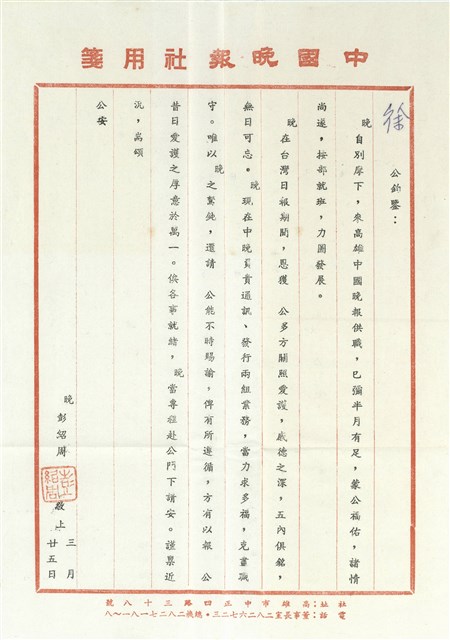 中國晚報社用箋
徐
公鈞鑒：
晚自別摩下，來高雄中國晚報供職，已彌半月有足，蒙公福佑，諸情
尚遂，按部就班，力圖發展。
晚在台灣日報期間，恩獲　公多方關照愛護，感德之深，五內俱銘，
無日可忘。晚現在中晚負責通訊、發行兩組業務，當力求多福，克盡職
守。唯以晚之駑鈍，還請　公能不時賜諭，俾有所遵循，方有以報　公
昔日愛護之厚意於萬一。俟各事就緒，晚當專程赴公門下請安。謹稟近
況，高頌
公安
晚　彭紹周　敬上　三月廿五日
社址：高雄市中正四路三十八號
電話：董事長室二八二六七二三・總機二八二七一八一～八